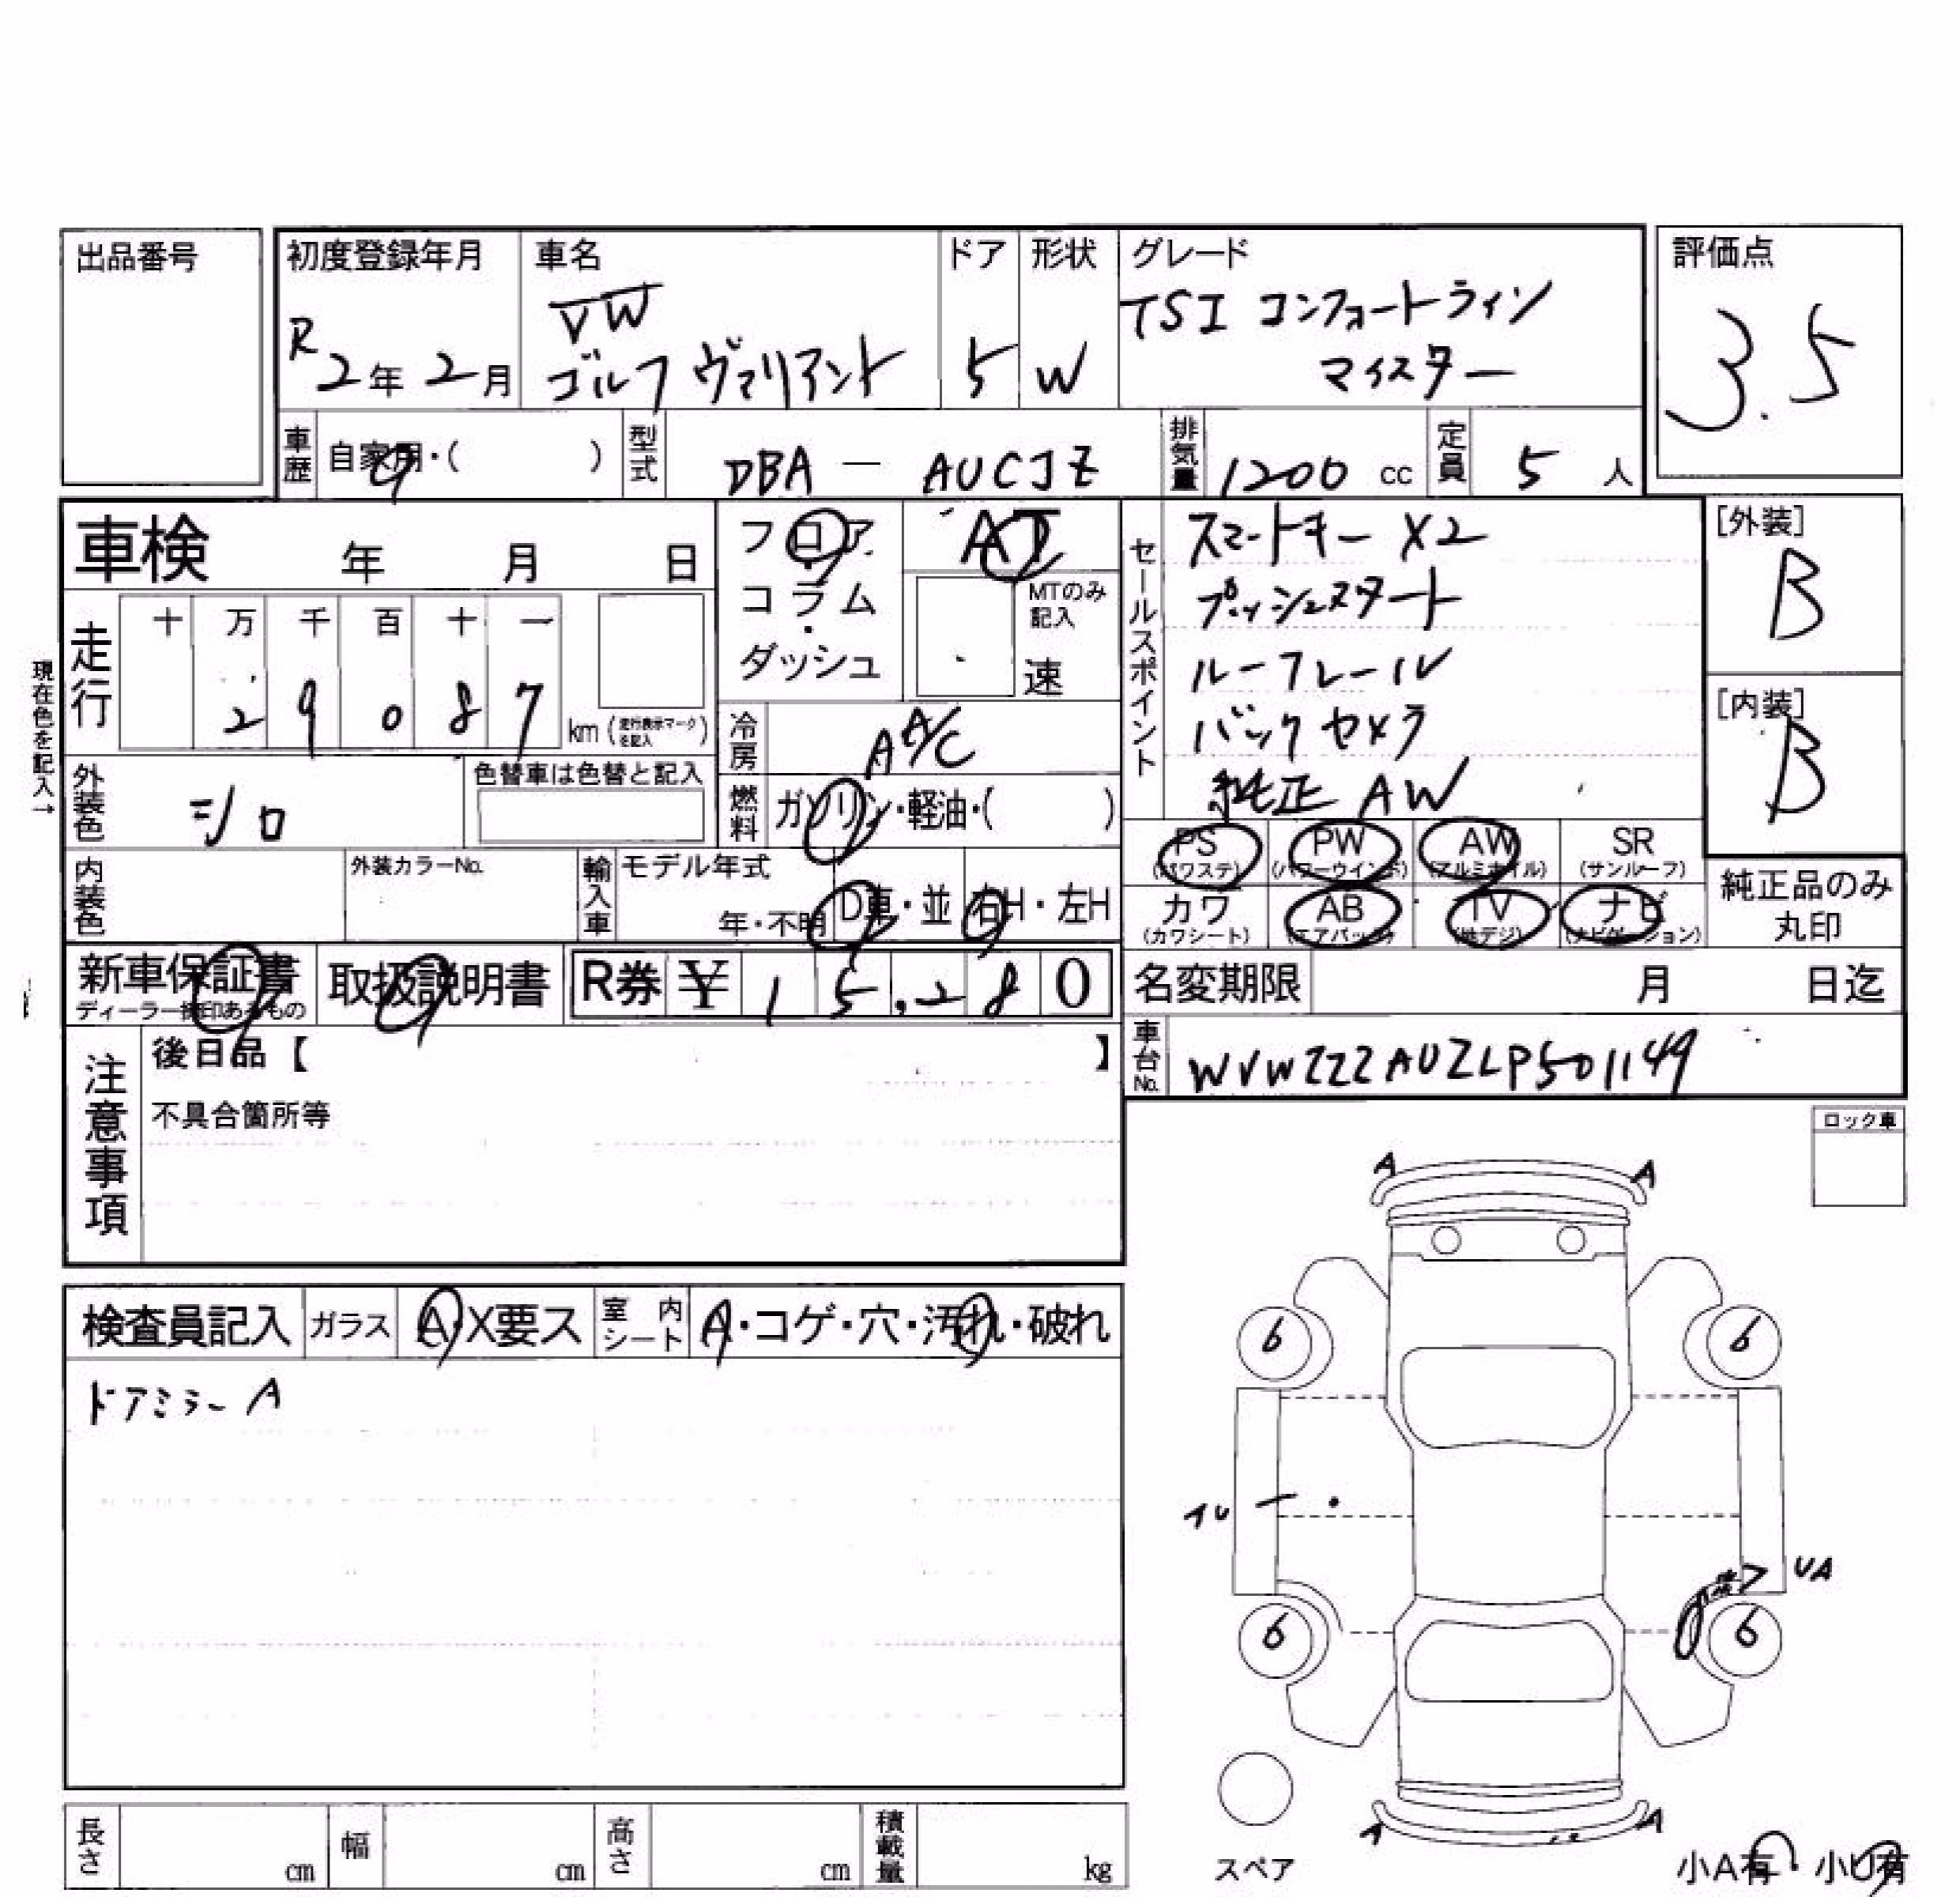 出品番号
初度登録年月
R2年2月
車名
VW
ゴルフ ヴァリアント
ドア
5
形状
W
グレード
TSI コンフォートライン
マイスター
評価点
3.5
車歴
自家用・( )
型式
DBA - AUCJZ
排気量
1200 cc
定員
5 人
車検 年 月 日
フロア
・
コラム
・
ダッシュ
AT
MTのみ
記入
速
セールスポイント
スマートキー X2
プッシュスタート
ルーフレール
バックカメラ
純正 AW
[外装]
B
[内装]
B
現在色を記入→
走行
十 万 千 百 十 一
2 9 0 8 7
km (走行表示マークを記入)
冷房
AA/C
外装色
シロ
色替車は色替と記入
燃料
ガソリン・軽油・( )
PS
(パワステ)
PW
(パワーウインド)
AW
(アルミホイル)
SR
(サンルーフ)
内装色
外装カラーNo.
輸入車
モデル年式
年・不明
D車・並
右H・左H
カワ
(カワシート)
AB
(エアバック)
TV
(地デジ)
ナビ
(ナビゲーション)
純正品のみ
丸印
新車保証書
ディーラー捺印あるもの
取扱説明書
R券 ¥ 1 5,2 8 0
名変期限 月 日迄
車台No.
WVWZZZAUZLP501149
注意事項
後日品【 】
不具合箇所等
ロック車
検査員記入
ガラス
A・X要ス
室内シート
A・コゲ・穴・汚れ・破れ
ドアミラー A
A A
6 6
UA
6 6
A A
スペア
小A有・小U有
長さ cm
幅 cm
高さ cm
積載量 kg